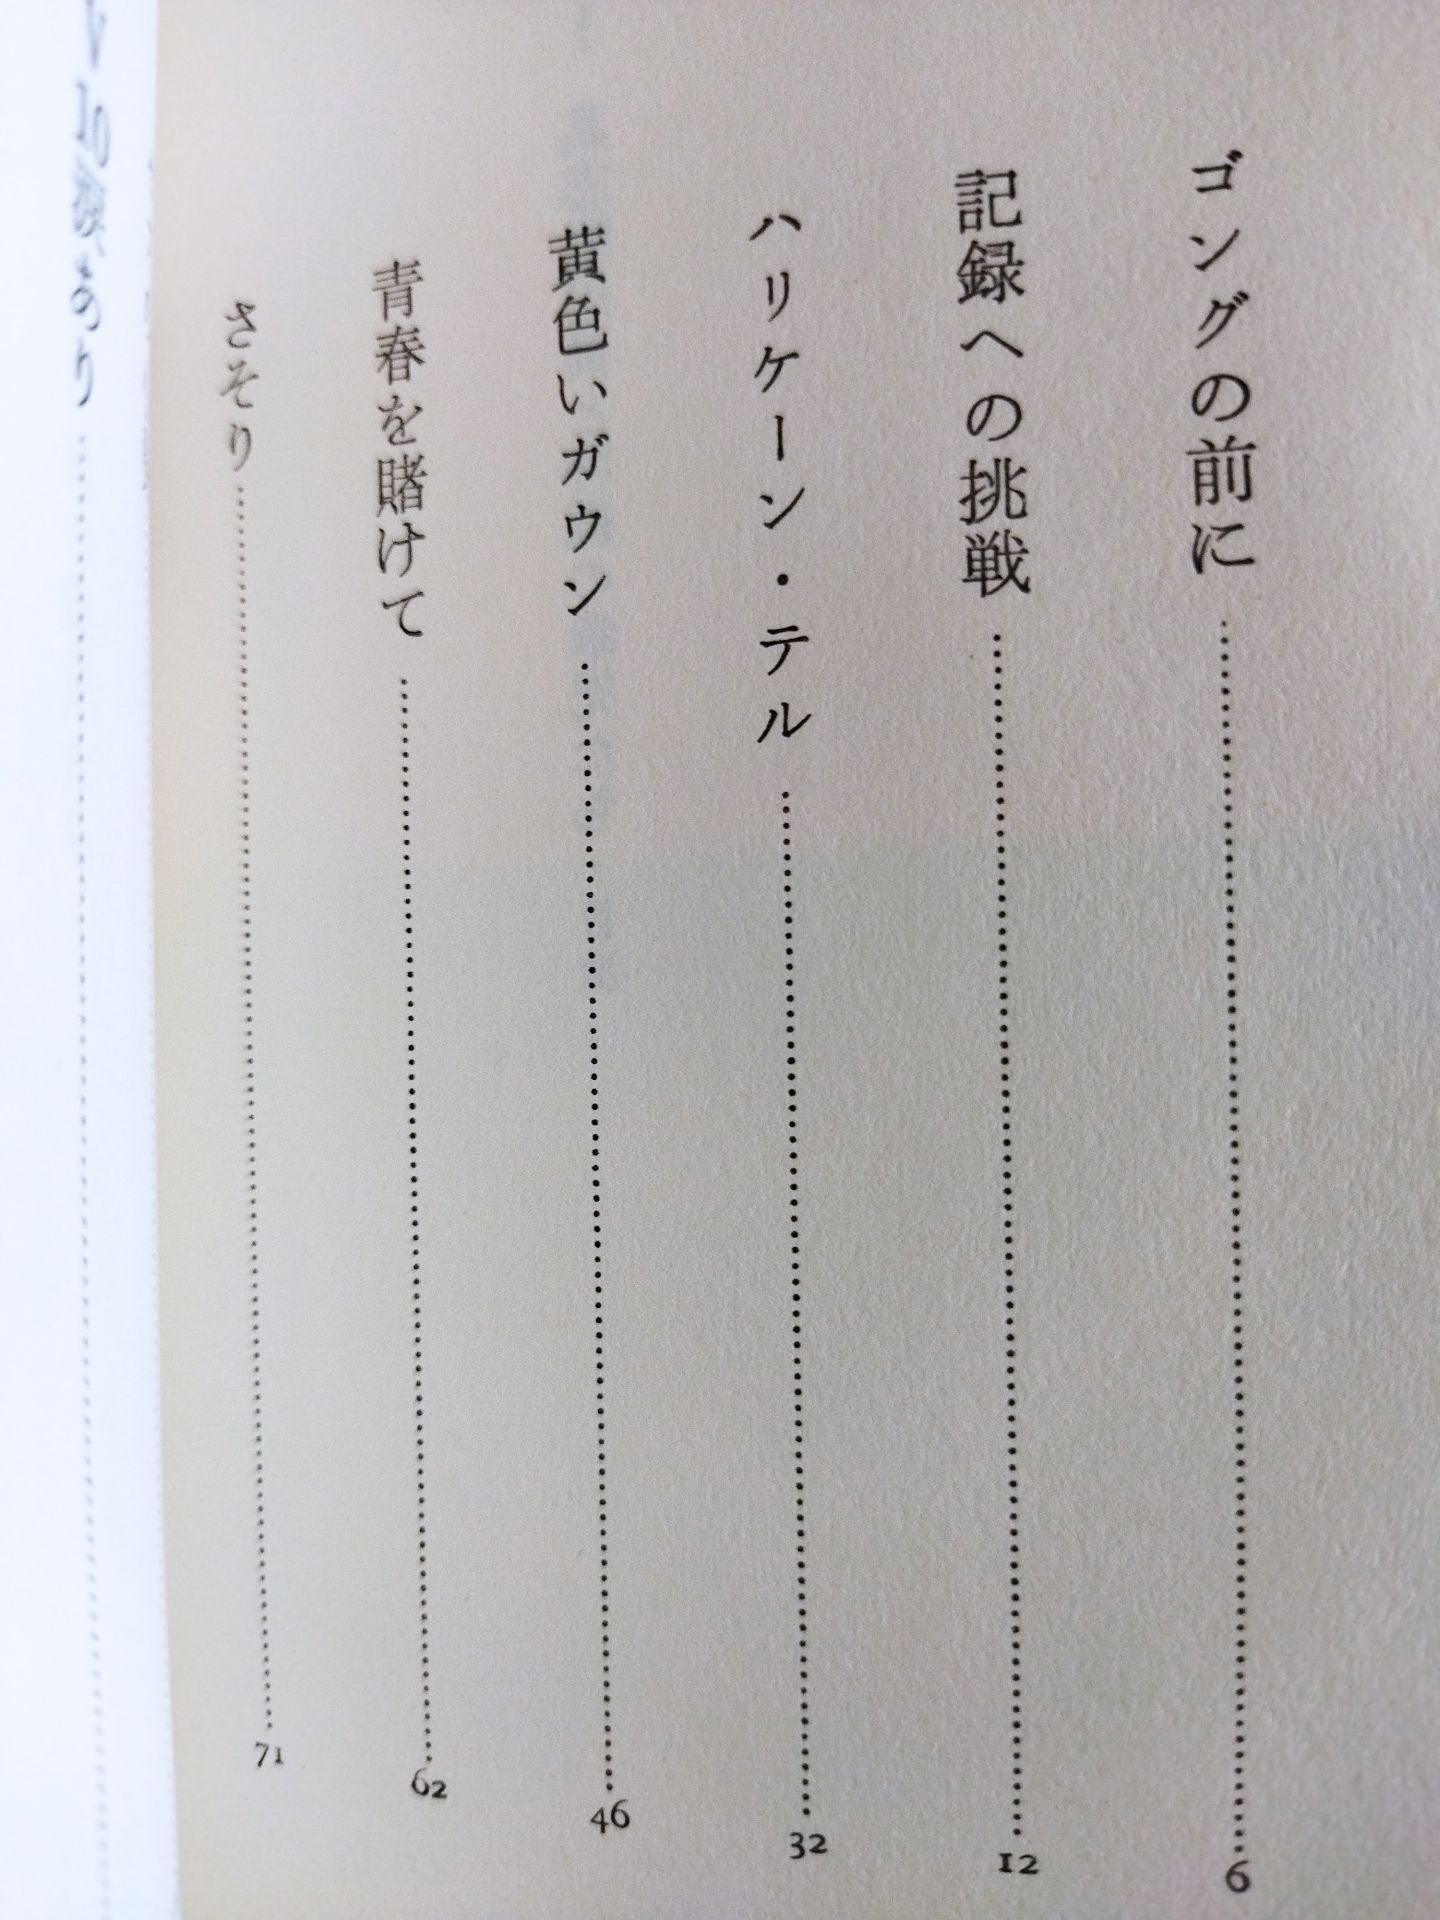 ゴングの前に……6
記録への挑戦……12
ハリケーン・テル……32
黄色いガウン……46
青春を賭けて……62
さそり……71
あり……